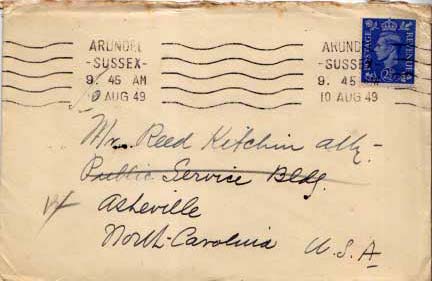 ARUNDEL
-SUSSEX-
9. 45 AM
10 AUG 49
ARUNDEL
-SUSSEX-
9. 45 AM
10 AUG 49
POSTAGE REVENUE
2½
Mr. Reed Kitchin atty-
Public Service Bldg.
Asheville
North-Carolina U.S.A